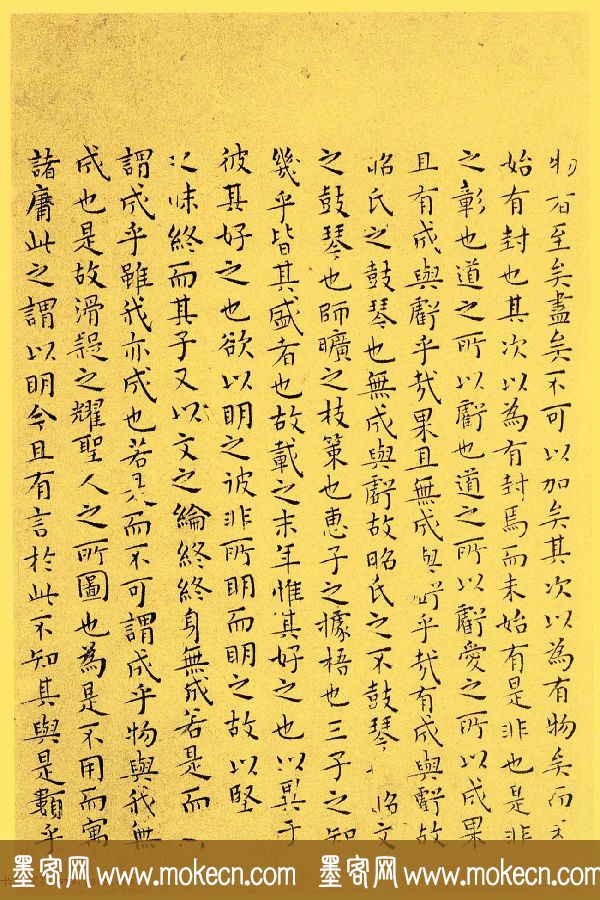 物者至矣盡矣不可以加矣其次以為有物矣而未
始有封也其次以為有封焉而未始有是非也是非
之彰也道之所以虧也道之所以虧愛之所以成果
且有成與虧乎哉果且無成與虧乎哉有成與虧故
昭氏之鼓琴也無成與虧故昭氏之不鼓琴昭文
之鼓琴也師曠之枝策也惠子之據梧也三子之知
幾乎皆其盛者也故載之末年惟其好之也以異于
彼其好之也欲以明之彼非所明而明之故以堅
之昧終而其子又以文之綸終終身無成若是而
謂成乎雖我亦成也若是而不可謂成乎物與我無
成也是故滑疑之耀聖人之所圖也為是不用而寓
諸庸此之謂以明今且有言於此不知其與是類乎
墨客网 www.mokecn.com 墨客网 www.mokecn.com